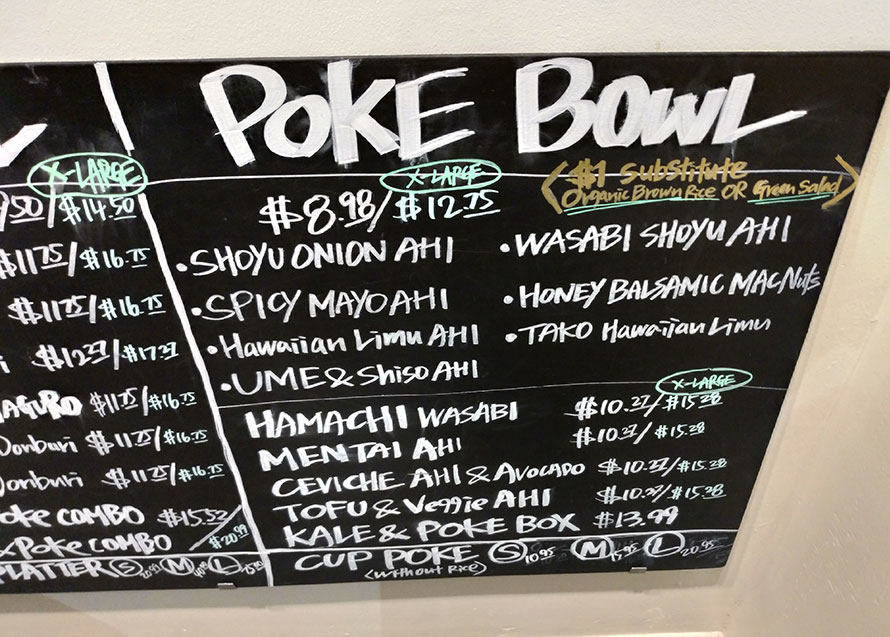 POKE BOWL
X-LARGE
$14.50
$11.75/$16.75
$11.75/$16.75
$12.27/$17.27
$11.75/$16.75
Donburi $11.75/$16.75
Donburi $11.75/$16.75
Poke COMBO $15.52
Poke COMBO $20.99
PLATTER S M L
X-LARGE
$8.98/$12.75
<$1 substitute
Organic Brown Rice OR Green Salad>
• SHOYU ONION AHI
• SPICY MAYO AHI
• Hawaiian Limu AHI
• UME & Shiso AHI
• WASABI SHOYU AHI
• HONEY BALSAMIC MAC Nuts
• TAKO Hawaiian Limu
X-LARGE
HAMACHI WASABI $10.27/$15.28
MENTAI AHI $10.27/$15.28
CEVICHE AHI & AVOCADO $10.27/$15.28
TOFU & Veggie AHI $10.27/$15.28
KALE & POKE BOX $13.99
CUP POKE S 10.95 M 15.95 L 20.95
(without Rice)